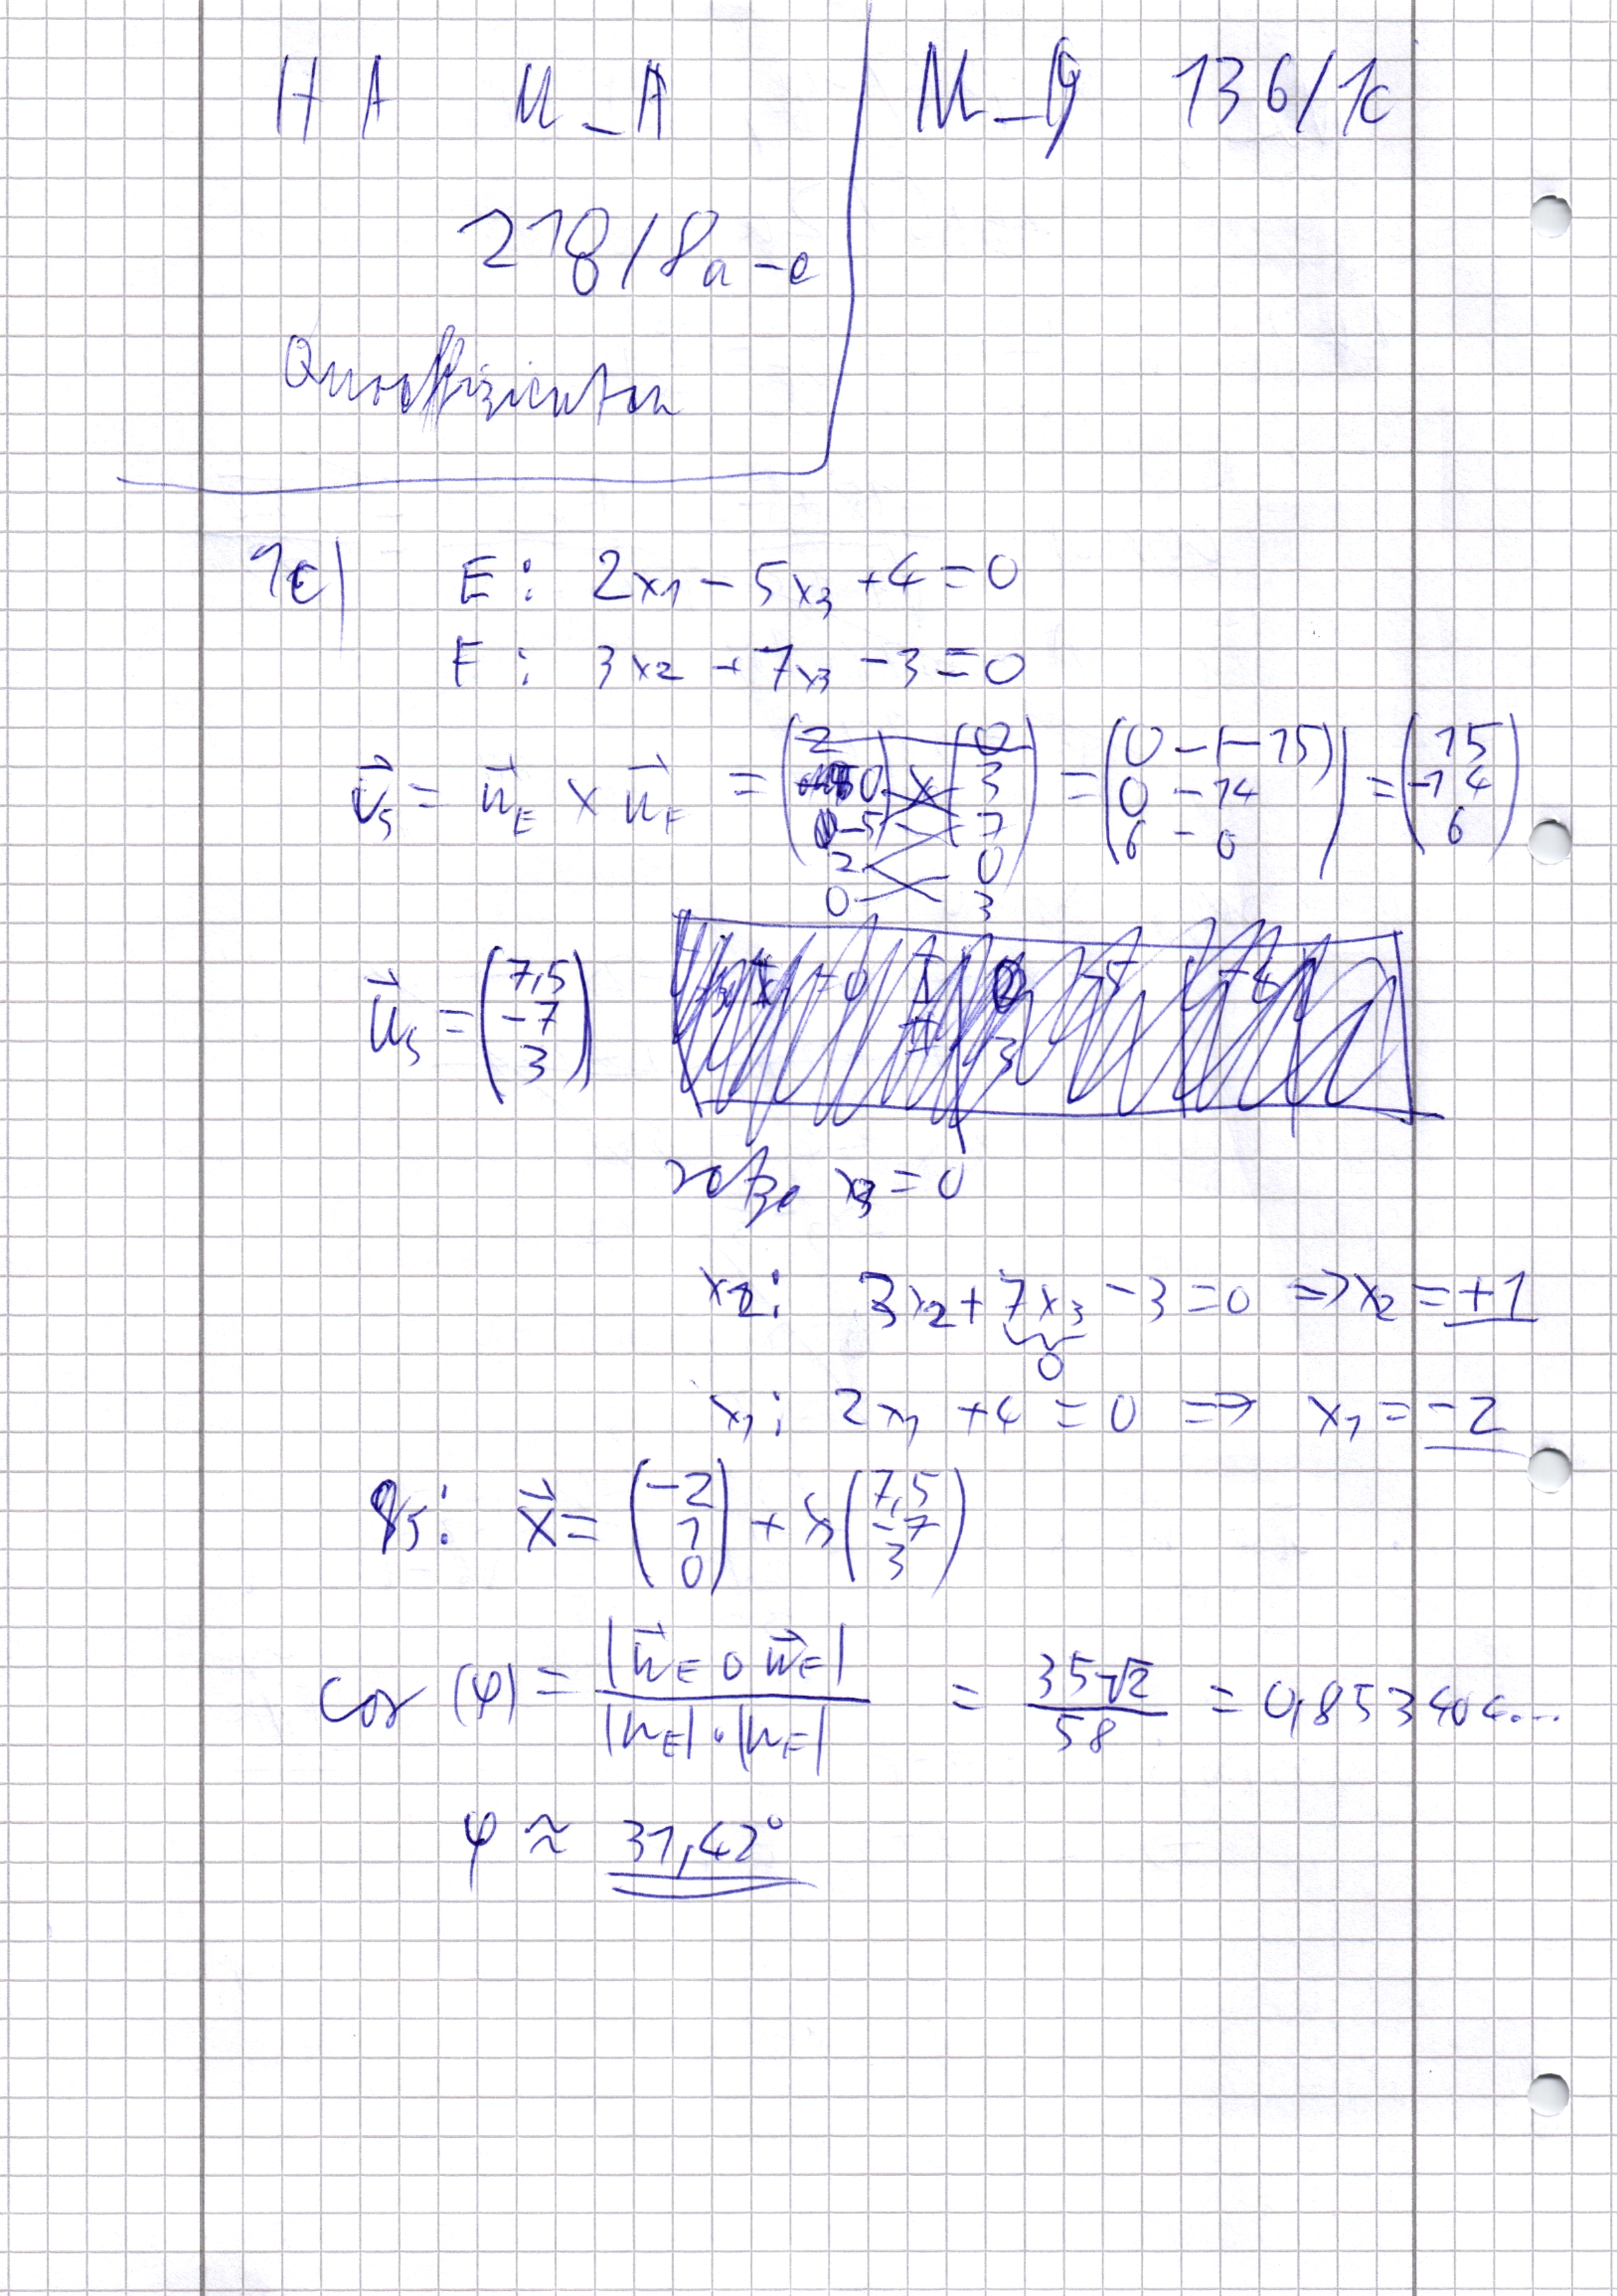 HA M_A
218/8a-e
M_G 136/1c
1c) E: 2x₁ - 5x₃ + 4 = 0
F: 3x₂ + 7x₃ - 3 = 0
v⃗ₛ = n⃗_E × n⃗_F = (2 0 -5 2 0) × (0 3 7 0 3) = (0 - (-15) 0 - 14 6 - 0) = (15 -14 6)
u⃗ₛ = (7,5 -7 3)
setze x₃ = 0
x₂: 3x₂ + 7x₃ - 3 = 0 => x₂ = +1
0
x₁: 2x₁ + 4 = 0 => x₁ = -2
gₛ: x⃗ = (-2 1 0) + s (7,5 -7 3)
cos (φ) = |n⃗_E ∘ n⃗_F| / |n_E| · |n_F| = 35√2 / 58 = 0,853404...
φ ≈ 31,42°